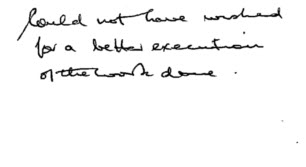 Could not have wished
for a better execution
of the work done .